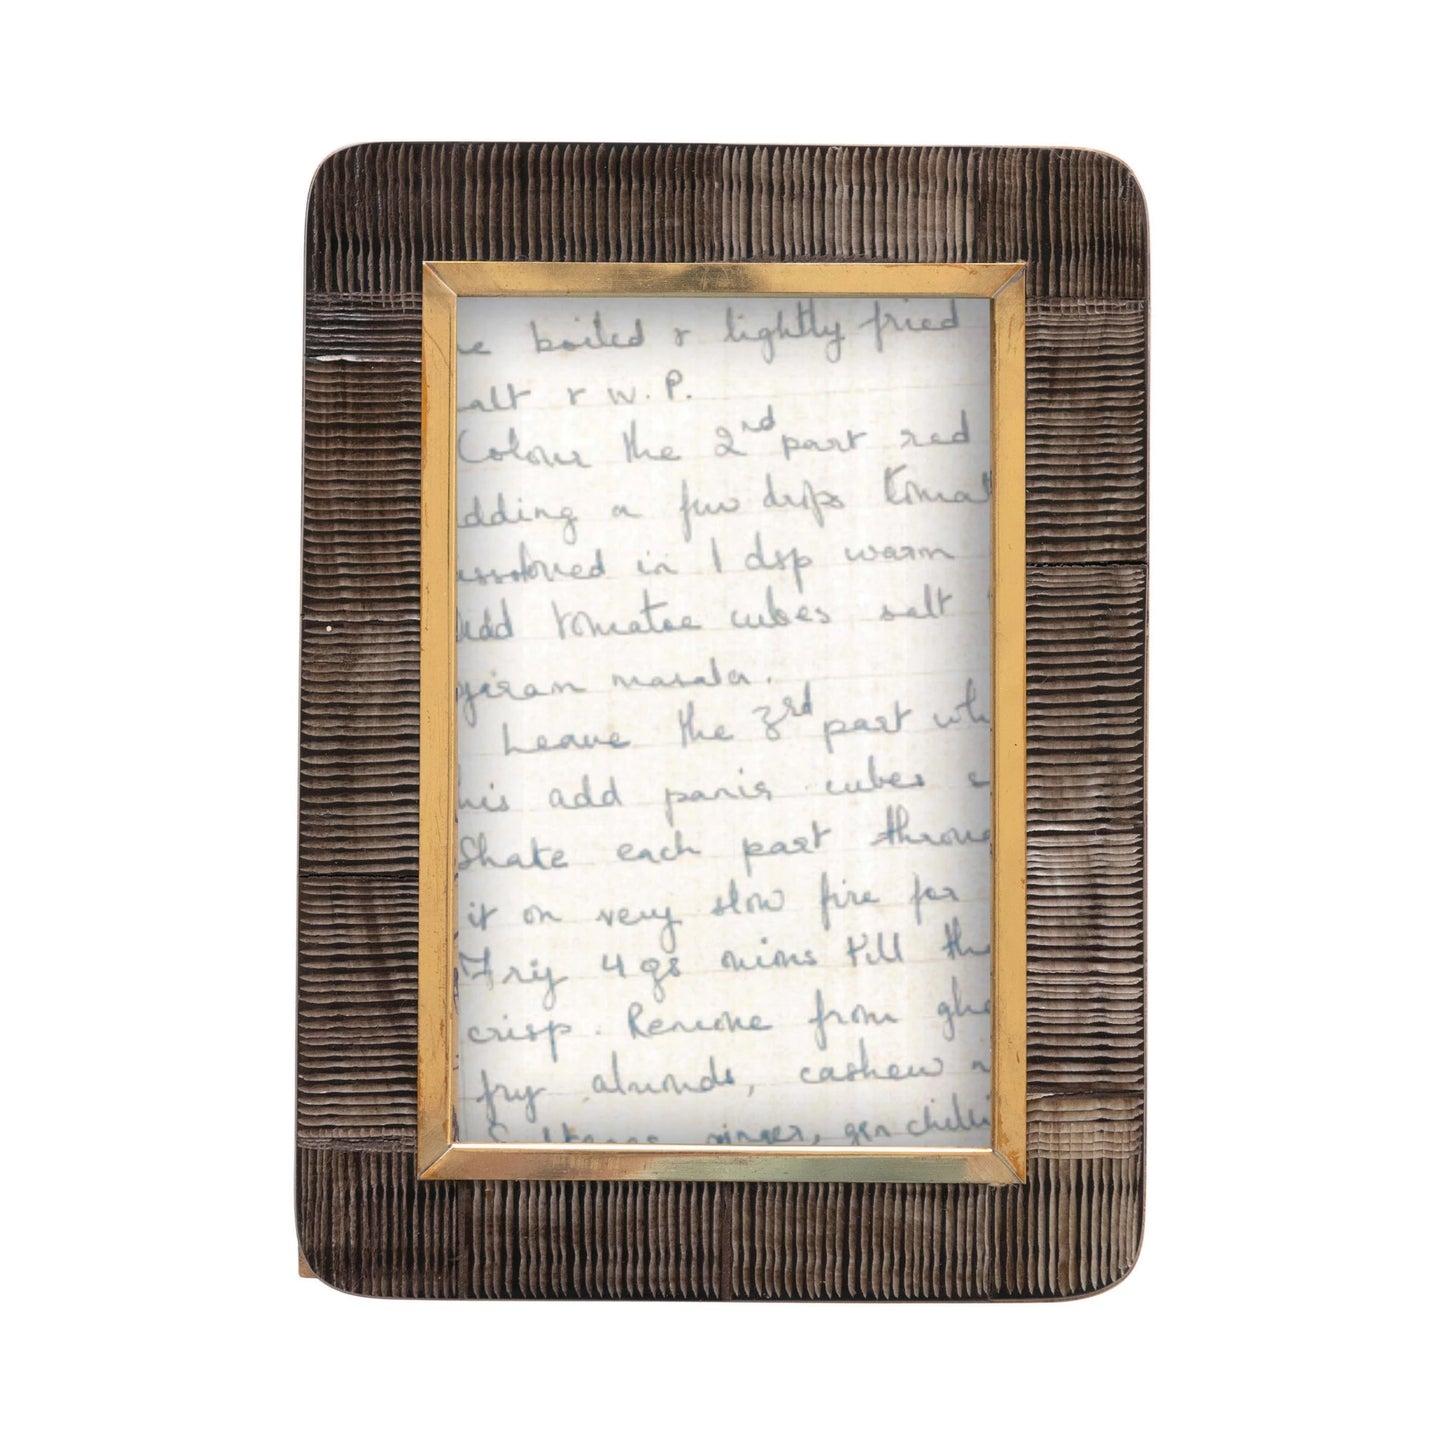 e boiled & lightly fried
alt & W.P.
Colour the 2nd part red
dding a few drops tomat
issolved in 1 dsp warm
Add tomatoe cubes salt
garam masala.
Leave the 3rd part wh
his add panir cubes
Shake each part throug
it on very slow fire for
Fry 4 gs onions till th
crisp. Remove from ghe
fry almonds, cashew n
Sultanas ginger, gen chilli